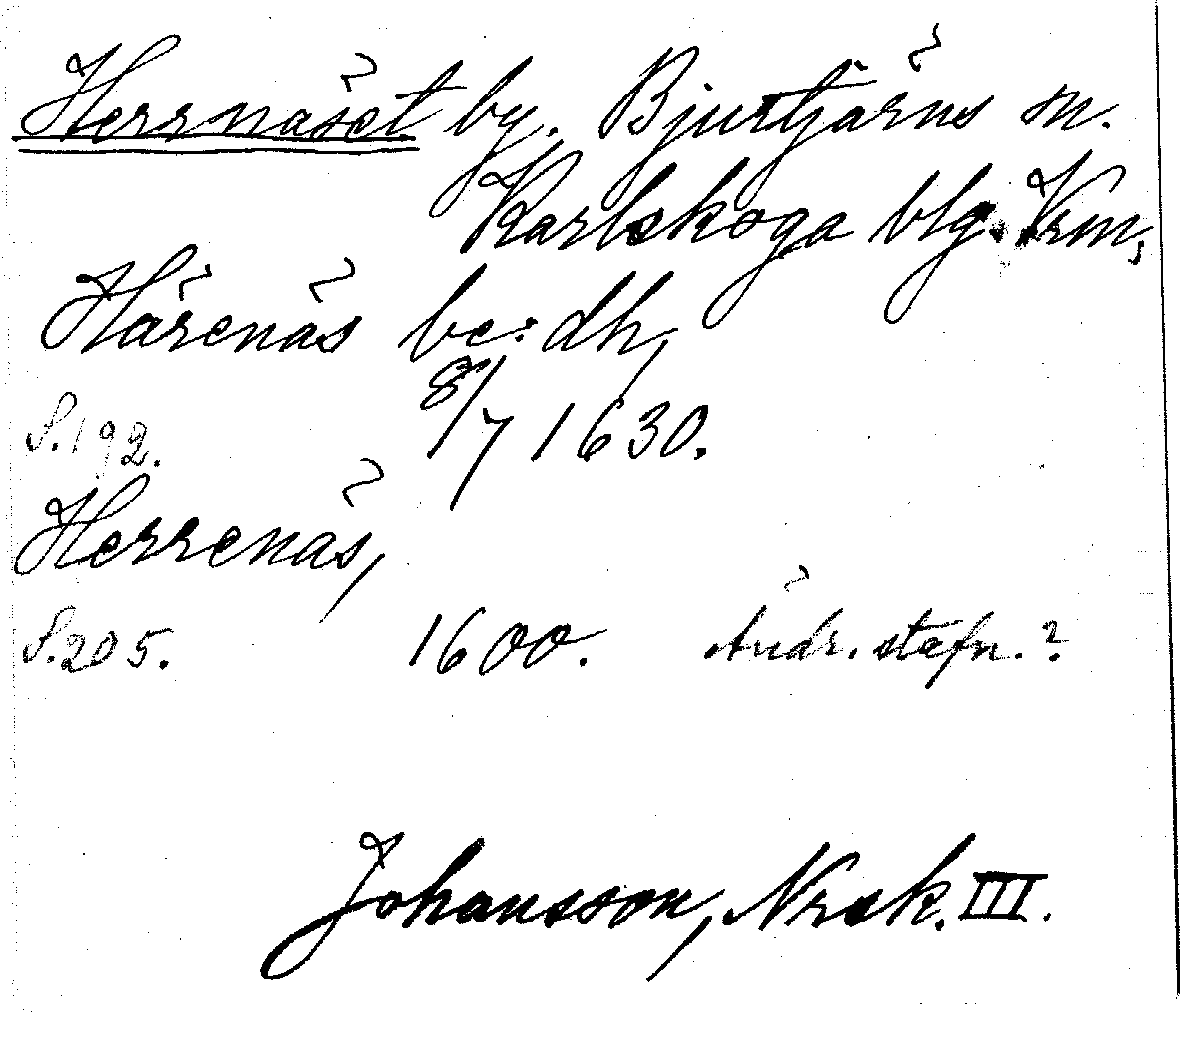 Herrnäset by. Bjurtjärns sn.
Karlskoga blg. Vrm,
Härenäs be: dh,
S.192. 8/7 1630.
Herrenäs,
S.205. 1600. Ändr. stafn.?
Johansson, Nrsk. III.